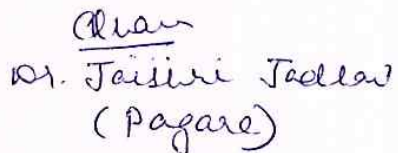 Dr. Jaisiri Jadhav
(Pagare)